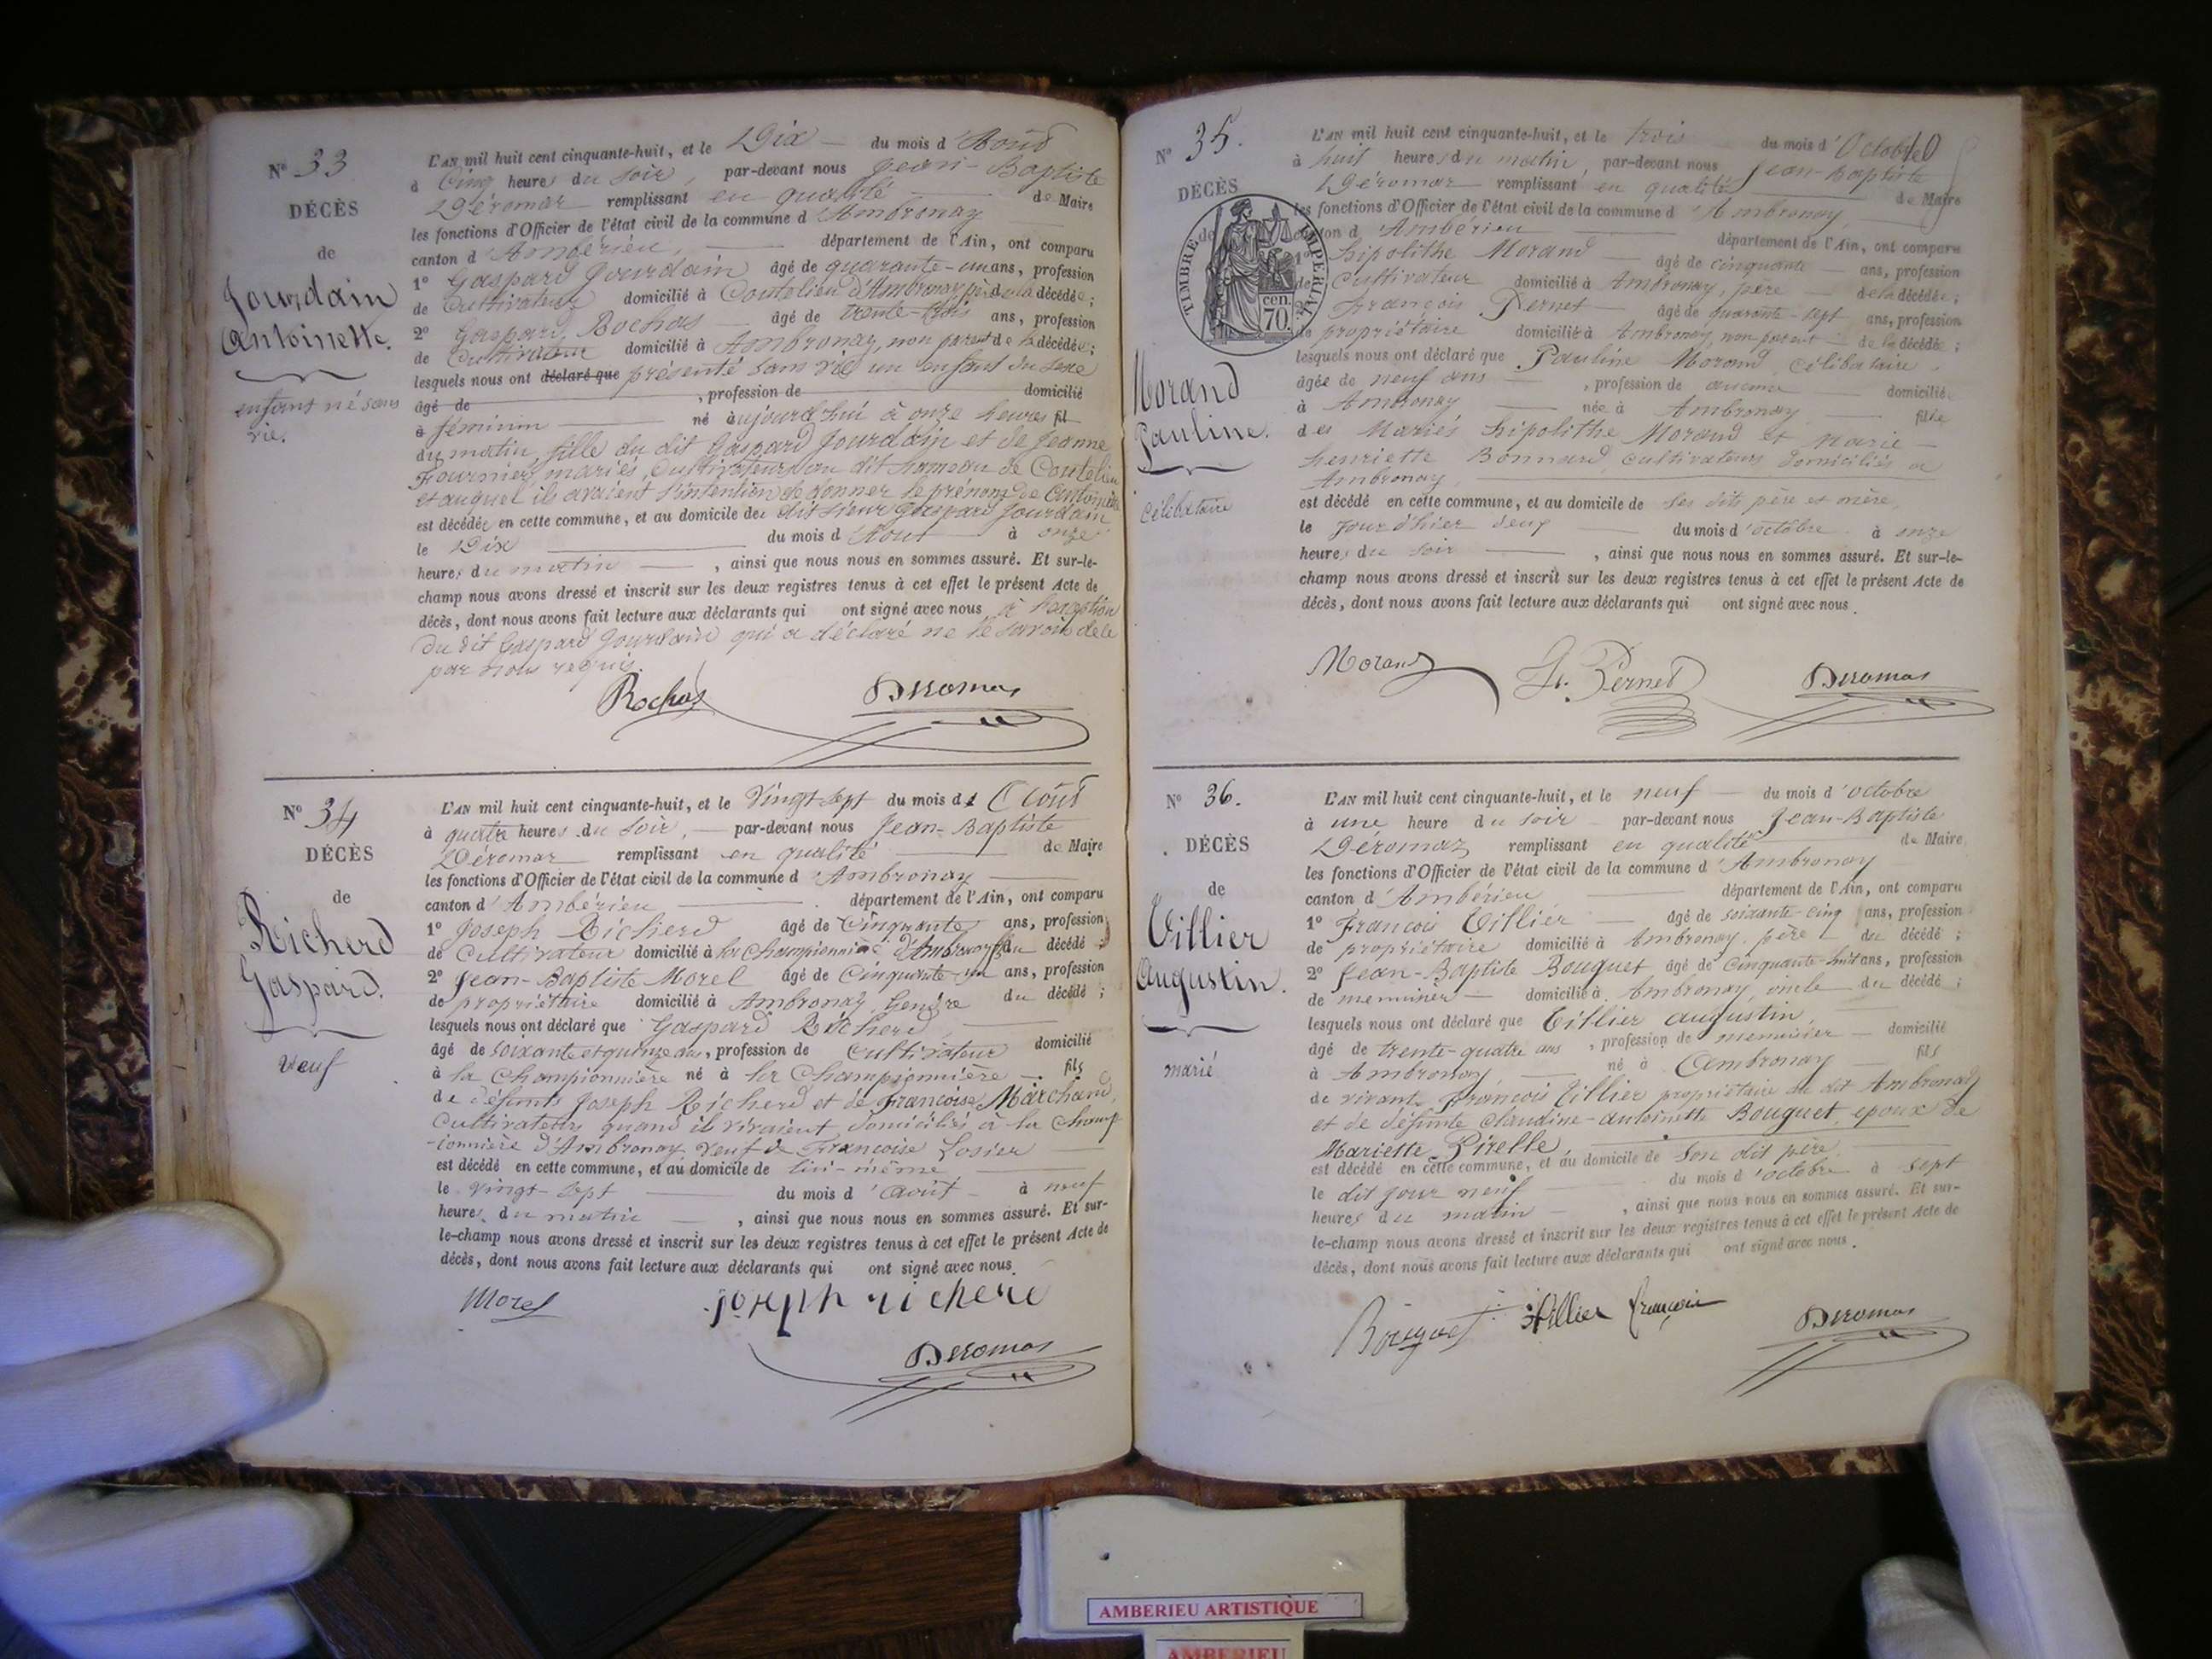 N° 33
DÉCÈS
de
Jourdain
Antoinette.
enfant né sans
vie.
L'AN mil huit cent cinquante-huit, et le Dix du mois d'Août
à Cinq heures du soir, par-devant nous Jean-Baptiste
Déromas remplissant en qualité de Maire
les fonctions d'Officier de l'état civil de la commune d'Ambronay
canton d'Ambérieu, département de l'Ain, ont comparu
1° Gaspard Jourdain âgé de quarante-un ans, profession
de Cultivateur domicilié à Coutelieu d'Ambronay, père de la décédée;
2° Gaspard Rochas âgé de trente-trois ans, profession
de Cultivateur domicilié à Ambronay, non parent de la décédée;
lesquels nous ont déclaré que présenté sans vie un enfant du sexe
âgé de , profession de domicilié
à féminin né aujourd'hui à onze heures fil
du matin, fille du dit Gaspard Jourdain et de Jeanne
Fournier mariés, Cultivateurs au dit hameau de Coutelieu
et auquel ils avaient l'intention de donner le prénom de Antoinette
est décédée en cette commune, et au domicile de dit sieur Gaspard Jourdain
le Dix du mois d'Août à onze
heures du matin , ainsi que nous nous en sommes assuré. Et sur-le-
champ nous avons dressé et inscrit sur les deux registres tenus à cet effet le présent Acte de
décès, dont nous avons fait lecture aux déclarants qui ont signé avec nous à l'exception
du dit Gaspard Jourdain qui a déclaré ne le savoir de ce
par nous requis.
Rochas Deromas
N° 34
DÉCÈS
de
Richerd
Gaspard.
Veuf
L'AN mil huit cent cinquante-huit, et le Vingt sept du mois d'Août
à quatre heures du soir, par-devant nous Jean-Baptiste
Déromas remplissant en qualité de Maire
les fonctions d'Officier de l'état civil de la commune d'Ambronay
canton d'Ambérieu département de l'Ain, ont comparu
1° Joseph Richerd âgé de Cinquante ans, profession
de Cultivateur domicilié à la Championnière d'Ambronay, fils du décédé;
2° Jean-Baptiste Morel âgé de Cinquante un ans, profession
de propriétaire domicilié à Ambronay, Gendre du décédé;
lesquels nous ont déclaré que Gaspard Richerd
âgé de soixante et quinze ans, profession de Cultivateur domicilié
à la Championnière né à la Championnière fils
de défunts Joseph Richerd et de Françoise Marchand,
Cultivateurs quand il vivaient domiciliés à la Champ
-ionnière d'Ambronay, veuf de Françoise Losier
est décédé en cette commune, et au domicile de lui-même
le vingt-sept du mois d'Août à neuf
heures du matin , ainsi que nous nous en sommes assuré. Et sur-
le-champ nous avons dressé et inscrit sur les deux registres tenus à cet effet le présent Acte de
décès, dont nous avons fait lecture aux déclarants qui ont signé avec nous.
Morel joseph richerd
Deromas
N° 35.
DÉCÈS
de
TIMBRE IMPÉRIAL
70 cen.
Morand
Pauline.
Célibataire
L'AN mil huit cent cinquante-huit, et le trois du mois d'Octobre
à huit heures du matin, par-devant nous Jean-Baptiste
Déromas remplissant en qualité de Maire
les fonctions d'Officier de l'état civil de la commune d'Ambronay
canton d'Ambérieu département de l'Ain, ont comparu
1° hipolithe Morand âgé de cinquante ans, profession
de Cultivateur domicilié à Ambronay, père de la décédée;
François Pernet âgé de quarante-sept ans, profession
de propriétaire domicilié à Ambronay, non parent de la décédée;
lesquels nous ont déclaré que Pauline Morand, Célibataire,
âgée de neuf ans , profession de aucune domicilié
à Ambronay née à Ambronay fille
des Mariés hipolithe Morand et Marie
henriette Bonnard, cultivateurs domiciliés à
Ambronay,
est décédé en cette commune, et au domicile de ses dits père et mère,
le jour d'hier deux du mois d'octobre à onze
heures du soir , ainsi que nous nous en sommes assuré. Et sur-le-
champ nous avons dressé et inscrit sur les deux registres tenus à cet effet le présent Acte de
décès, dont nous avons fait lecture aux déclarants qui ont signé avec nous.
Morand Pernet Deromas
N° 36.
DÉCÈS
de
Tillier
Augustin.
marié
L'AN mil huit cent cinquante-huit, et le neuf du mois d'octobre
à une heure du soir par-devant nous Jean-Baptiste
Déromas remplissant en qualité de Maire
les fonctions d'Officier de l'état civil de la commune d'Ambronay
canton d'Ambérieu département de l'Ain, ont comparu
1° François Tillier âgé de soixante-cinq ans, profession
de propriétaire domicilié à Ambronay, père du décédé;
2° Jean-Baptiste Bouguet âgé de Cinquante-huit ans, profession
de menuisier domicilié à Ambronay, oncle du décédé;
lesquels nous ont déclaré que Tillier augustin,
âgé de trente-quatre ans , profession de menuisier domicilié
à Ambronay, né à Ambronay fils
de vivant François Tillier propriétaire au dit Ambronay
et de défunte Claudine-antoinette Bouguet, epoux de
Mariette Pirelle,
est décédé en cette commune, et au domicile de son dit père
le dit jour neuf du mois d'octobre à sept
heures du matin , ainsi que nous nous en sommes assuré. Et sur-
le-champ nous avons dressé et inscrit sur les deux registres tenus à cet effet le présent Acte de
décès, dont nous avons fait lecture aux déclarants qui ont signé avec nous.
Bouguet tillier françois Deromas
AMBERIEU ARTISTIQUE
AMBERIEU